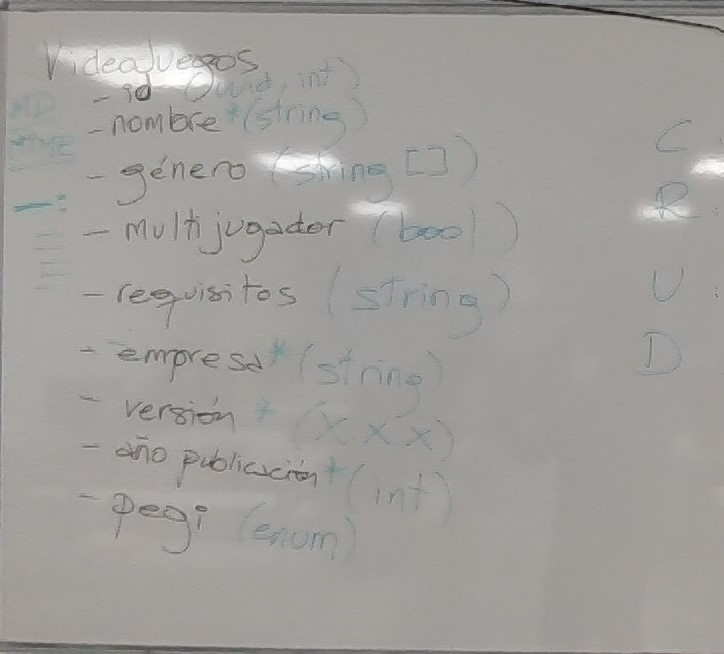 VideoJuegos
- id (uuid, int)
- nombre * (string)
- género (string [])
- multijugador (bool)
- requisitos (string)
- empresa * (string)
- versión * (X X X)
- año publicación * (int)
- pegi (enum)
C
R
U :
D